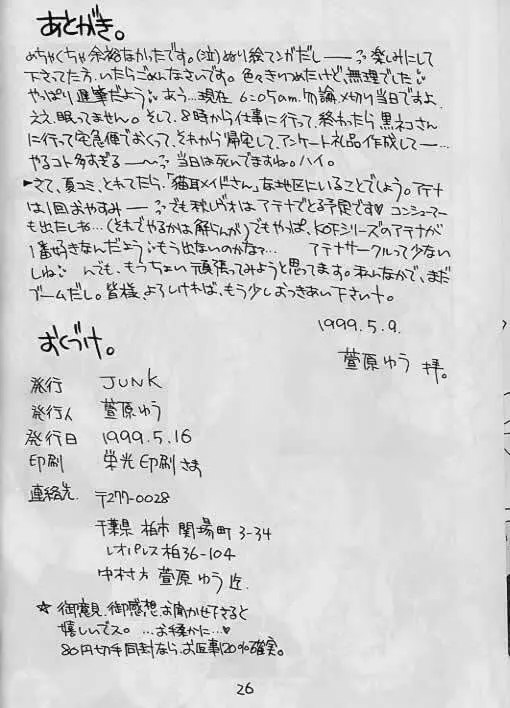 あとがき。
めちゃくちゃ余裕なかったです。(泣)ぬり絵マンガだし——?? 楽しみにして
下さってた方、いたらごめんなさいです。色々きりつめたけど、無理でした
やっぱり遅筆だよう あう…現在 6:05am. 勿論〆切り当日ですよ.
ええ、眠ってません。そして、8時から仕事に行って、終わったら黒ネコさん
に行って宅急便でおくって、それから帰宅して、アンケート礼品作成して——…
やるコト多すぎる——〜?? 当日は死んでますね。ハイ。
►さて、夏コミ、とれてたら、「猫耳メイドさん」な地区にいることでしょう。アテナ
は1回おやすみ——?? でも秋レヴォはアテナでとる予定です♥ コンシューマー
も出たしね…(それでやるかは解らんが)でもやっぱ、KOFシリーズのアテナが
1番好きなんだよう もう出ないのかなァ… アテナサークルって少ない
しね んでも、もうちょい頑張ってみようと思ってます。私いなかで、まだ
ブームだし。皆様、よろしければ、もう少しおつきあい下さい。
1999.5.9.
萱原ゆう 拝。
おくづけ。
発行 JUNK
発行人 萱原ゆう
発行日 1999.5.16
印刷 栄光印刷さま
連絡先 〒277-0028
千葉県 柏市 関場町 3-34
レオパレス柏36-104
中村方 萱原ゆう 迄.
☆ 御意見、御感想、お聞かせ下さると
嬉しいでス。…お手柔かに…♥
80円切手同封なら、お返事120%確実。
26